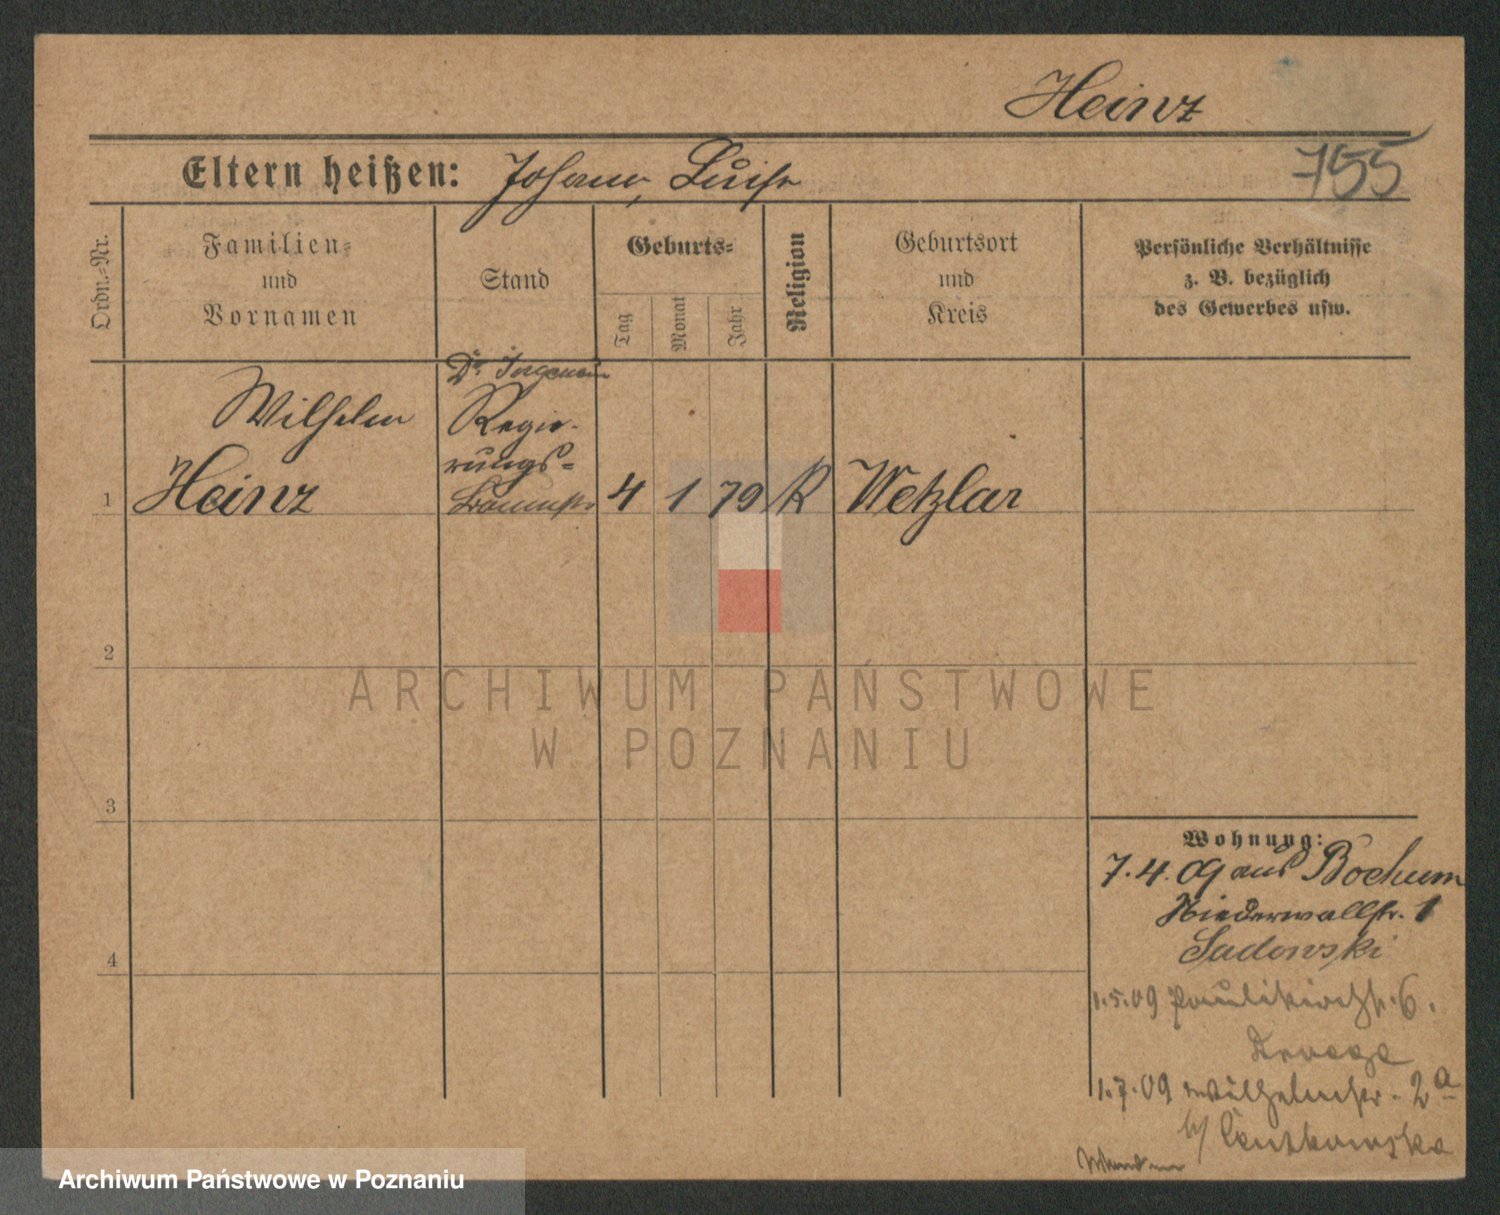 Heinz
Eltern heißen: Johann, Luise
755
Ordn.-Nr.
Familien-
und
Vornamen
Stand
Geburts-
Tag
Monat
Jahr
Religion
Geburtsort
und
Kreis
Persönliche Verhältnisse
z. B. bezüglich
des Gewerbes usw.
1
Wilhelm
Heinz
Dr.
Regie-
rungs-
4 1 79 K Wetzlar
2
3
4
ARCHIWUM PAŃSTWOWE
W POZNANIU
Wohnung:
7.4.09 aus Bochum
Niederwallstr. 1
Sadowski
1.5.09 Paulikirchstr. 6.
1.7.09 Wilhelmstr. 2a
b/
Archiwum Państwowe w Poznaniu